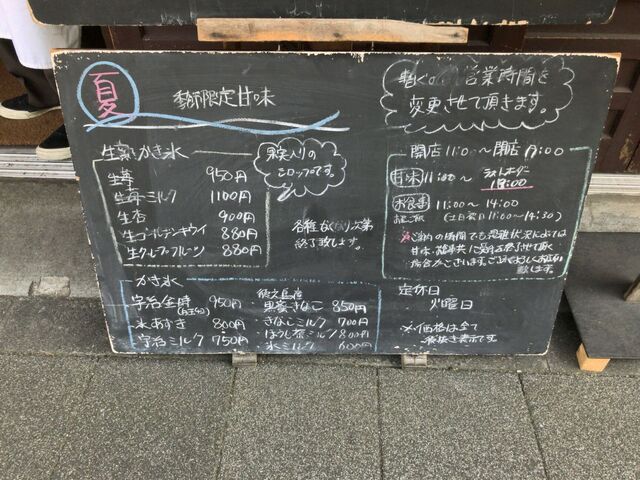 夏
季節限定甘味
生氷かき氷
生苺 950円
生苺ミルク 1100円
生杏 900円
生ゴールデンキウイ 880円
生グレープフルーツ 880円
果実入りの
シロップです。
各種なくなり次第
終了致します。
かき氷
宇治金時 950円
氷あずき 800円
宇治ミルク 750円
徳之島産
黒蜜きなこ 850円
きなこミルク 700円
ほうじ茶ミルク 800円
氷ミルク 600円
営業時間を
変更させて頂きます。
開店11:00〜閉店19:00
甘味 11:00〜 ラストオーダー
18:00
お食事 11:00〜14:00
(土日祝日11:00〜14:30)
ご案内の時間でも混雑状況によっては
甘味・お食事共に受付を終了させて頂く
場合がございます。ご了承くださいますようお願い
致します。
定休日
火曜日
※価格は全て
税抜き表示です。